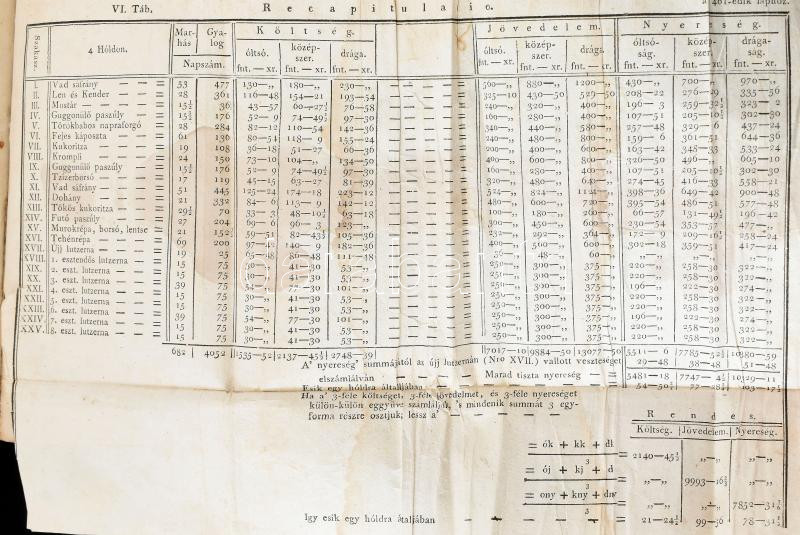 VI. Táb. Recapitulatio. a 461-edik laphoz.
Szakasz. 4 Hóldon. Marhás Gyalog Költség. Jövedelem. Nyereség.
Napszám. óltsó. középszer. drága. óltsó. középszer. drága. óltsóság. középszer. drágaság.
fnt. — xr. fnt. — xr. fnt. — xr. fnt. — xr. fnt. — xr. fnt. — xr. fnt. — xr. fnt. — xr. fnt. — xr.
I. Vad sáfrány — — = 53 477 130—„ 180—„ 230—„ 560—„ 880—„ 1200—„ 430—„ 700—„ 970—„
II. Len és Kender — — = 28 361 116—48 154—21 193—54 325—10 430—50 529—50 208—22 276—29 335—56
III. Mustár — — — = 15½ 36 43—57 60—27½ 76—58 240—„ 320—„ 400—„ 196—3 259—32½ 323—2
IV. Guggonülő paszúly = 15½ 176 52—9 74—49½ 97—30 160—„ 280—„ 400—„ 107—51 205—10½ 302—30
V. Törökbabos napraforgó = 28 284 82—12 110—54 142—36 340—„ 440—„ 580—„ 257—48 329—6 437—24
VI. Fejes káposzta — = 61 136 80—54 118—9 155—24 240—„ 480—„ 800—„ 159—6 361—51 644—30
VII. Kukoritza — — = 19 108 36—18 51—27 66—36 200—„ 400—„ 600—„ 163—42 348—33 533—24
VIII. Krompli — — — = 24 150 73—10 104—„ 134—50 400—„ 600—„ 800—„ 326—50 496—„ 605—10
IX. Guggonülő paszúly = 15½ 176 52—9 74—49½ 97—30 160—„ 280—„ 400—„ 107—51 205—10½ 302—30
X. Tzitzerborsó — — = 17 119 45—15 63—27 81—39 320—„ 480—„ 640—„ 274—45 416—33 558—21
XI. Vad sáfrány — — = 51 445 125—24 174—18 223—12 524—„ 824—„ 1124—„ 398—36 649—42 900—48
XII. Dohány — — — = 21 332 84—6 113—9 142—12 480—„ 600—„ 720—„ 395—54 486—51 577—48
XIII. Tökös kukoritza — = 29½ 70 33—3 48—10½ 63—18 100—„ 180—„ 260—„ 66—57 131—49½ 196—42
XIV. Futó paszúly — — = 27 204 69—6 96—3 123—„ 300—„ 450—„ 600—„ 230—54 353—57 477—„
XV. Murokrépa, borsó, lentse = 21 152½ 59—51 82—43½ 105—36 232—„ 292—„ 364—„ 172—9 209—16½ 258—24
XVI. Tehénrépa — — = 69 200 97—42 140—9 182—36 400—„ 500—„ 600—„ 302—18 359—51 417—24
XVII. Újj lutzerna — — = 19 25 65—48 86—48 111—48 56—„ 48—„ 60—„
XVIII. 1. esztendős lutzerna = 15 75 30—„ 41—30 53—„ 250—„ 300—„ 375—„ 220—„ 258—30 322—„
XIX. 2. eszt. lutzerna — = 15 75 30—„ 41—30 53—„ 250—„ 300—„ 375—„ 220—„ 258—30 322—„
XX. 3. eszt. lutzerna — = 15 75 30—„ 41—30 53—„ 250—„ 300—„ 375—„ 220—„ 258—30 322—„
XXI. 4. eszt. lutzerna — = 39 75 54—„ 77—30 101—„ 250—„ 300—„ 375—„ 196—„ 222—30 274—„
XXII. 5. eszt. lutzerna — = 15 75 30—„ 41—30 53—„ 250—„ 300—„ 375—„ 220—„ 258—30 322—„
XXIII. 6. eszt. lutzerna — = 15 75 30—„ 41—30 53—„ 250—„ 300—„ 375—„ 220—„ 258—30 322—„
XXIV. 7. eszt. lutzerna — = 39 75 54—„ 77—30 101—„ 250—„ 300—„ 375—„ 196—„ 222—30 274—„
XXV. 8. eszt. lutzerna — = 15 75 30—„ 41—30 53—„ 250—„ 300—„ 375—„ 220—„ 258—30 322—„
682 4052 1535—52 2137—45½ 2748—39 7017—10 9884—50 13077—50 5511—„ 7785—52½ 10380—59
A' nyereség' summájától az újj lutzernán (Nro XVII.) vallott veszteséget 29—48 38—48 51—48
elszámlálván — — — Marad tiszta nyereség — — = 5481—18 7747—4½ 10329—11
Esik egy hóldra általljában 54—50½ 77—28½ 103—17½
Ha a' 3-féle költséget, 3-féle jövedelmet, és 3-féle nyereséget
külön-külön eggyüvé számláljuk, 's mindenik summát 3 egyforma részre osztjuk; lessz a' — — — — —
Rendes.
Költség. Jövedelem. Nyereség.
= ók + kk + dk = 2140—45½ „—„ „—„
3
= ój + kj + d = „—„ 9993—16½ „—„
3
= ony + kny + dny = „—„ „—„ 7852—31
3
Igy esik egy hóldra átaljában — — — — = 21—24½ 99—56 78—31½